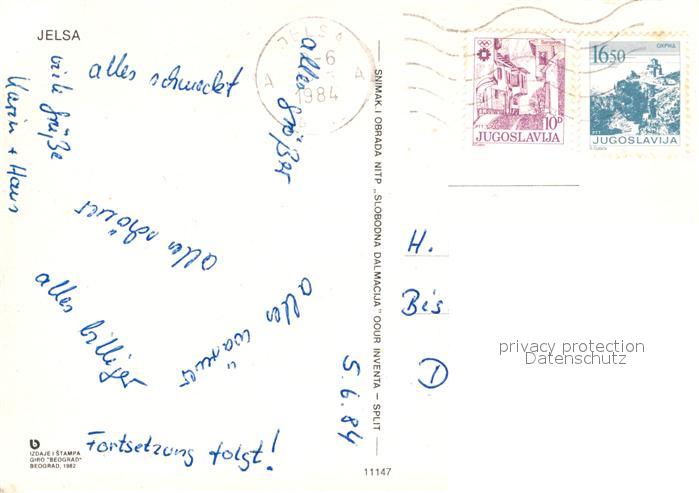 JELSA
alles schmeckt
viele Grüße
Karin + Haus
alles größer
alles schöner
alles billiger
alles wärmer
5.6.84
Fortsetzung folgt!
IZDAJE I ŠTAMPA
GIRO "BEOGRAD"
BEOGRAD, 1982
11147
SNIMAK I OBRADA NITP „SLOBODNA DALMACIJA" OOUR INVENTA – SPLIT
JELSA
6
A A
1984
10D
PTT
JUGOSLAVIJA
16.50 ОХРИД
PTT
JUGOSLAVIJA
H.
Bis
D
privacy protection
Datenschutz